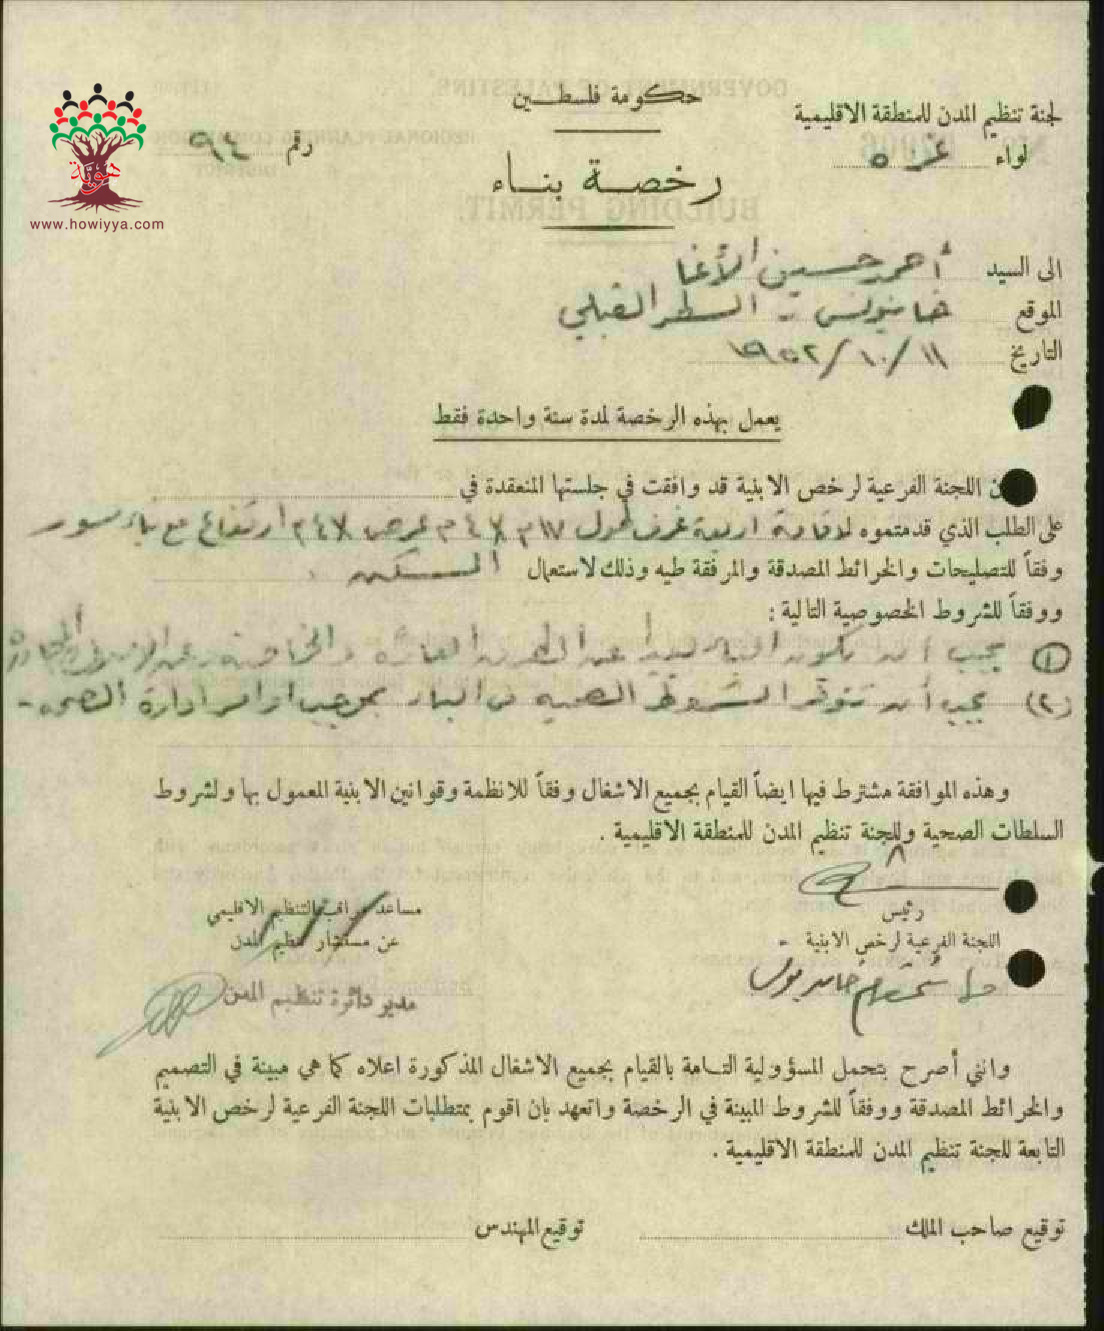 حكومة فلسطين
لجنة تنظيم المدن للمنطقة الاقليمية
لواء غزة
رقم ٩٤
رخصة بناء
هوية
www.howiyya.com
الى السيد أحمد حسين الأغا
الموقع خانيونس - السطر القبلي
التاريخ ١١/١٠/١٩٥٢
يعمل بهذه الرخصة لمدة سنة واحدة فقط
اللجنة الفرعية لرخص الابنية قد وافقت في جلستها المنعقدة في
على الطلب الذي قدمتموه لاقامة اربعة غرف طول عرض ارتفاع مع بناء سور
وفقاً للتصليحات والخرائط المصدقة والمرفقة طيه وذلك لاستعمال السكن .
ووفقاً للشروط الخصوصية التالية :
(١) يجب أن يكون البناء بعيداً عن الطرق العامة والخاصة وعن
(٢) يجب أن تتوفر الشروط الصحية في البناء بموجب اوامر ادارة الصحة -
وهذه الموافقة مشترط فيها ايضاً القيام بجميع الاشغال وفقاً للانظمة وقوانين الابنية المعمول بها ولشروط
السلطات الصحية وللجنة تنظيم المدن للمنطقة الاقليمية .
رئيس
اللجنة الفرعية لرخص الابنية -
مساعد مراقب التنظيم الاقليمي
عن مستشار تنظيم المدن
مدير دائرة تنظيم المدن
وانني أصرح بتحمل المسؤولية التامة بالقيام بجميع الاشغال المذكورة اعلاه كما هي مبينة في التصميم
والخرائط المصدقة ووفقاً للشروط المبينة في الرخصة واتعهد بان اقوم بمتطلبات اللجنة الفرعية لرخص الابنية
التابعة للجنة تنظيم المدن للمنطقة الاقليمية .
توقيع صاحب الملك
توقيع المهندس